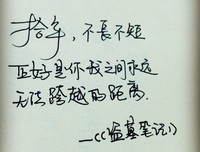 拾年，不长不短
正好是你我之间永远
无法跨越的距离.
—《盗墓笔记》